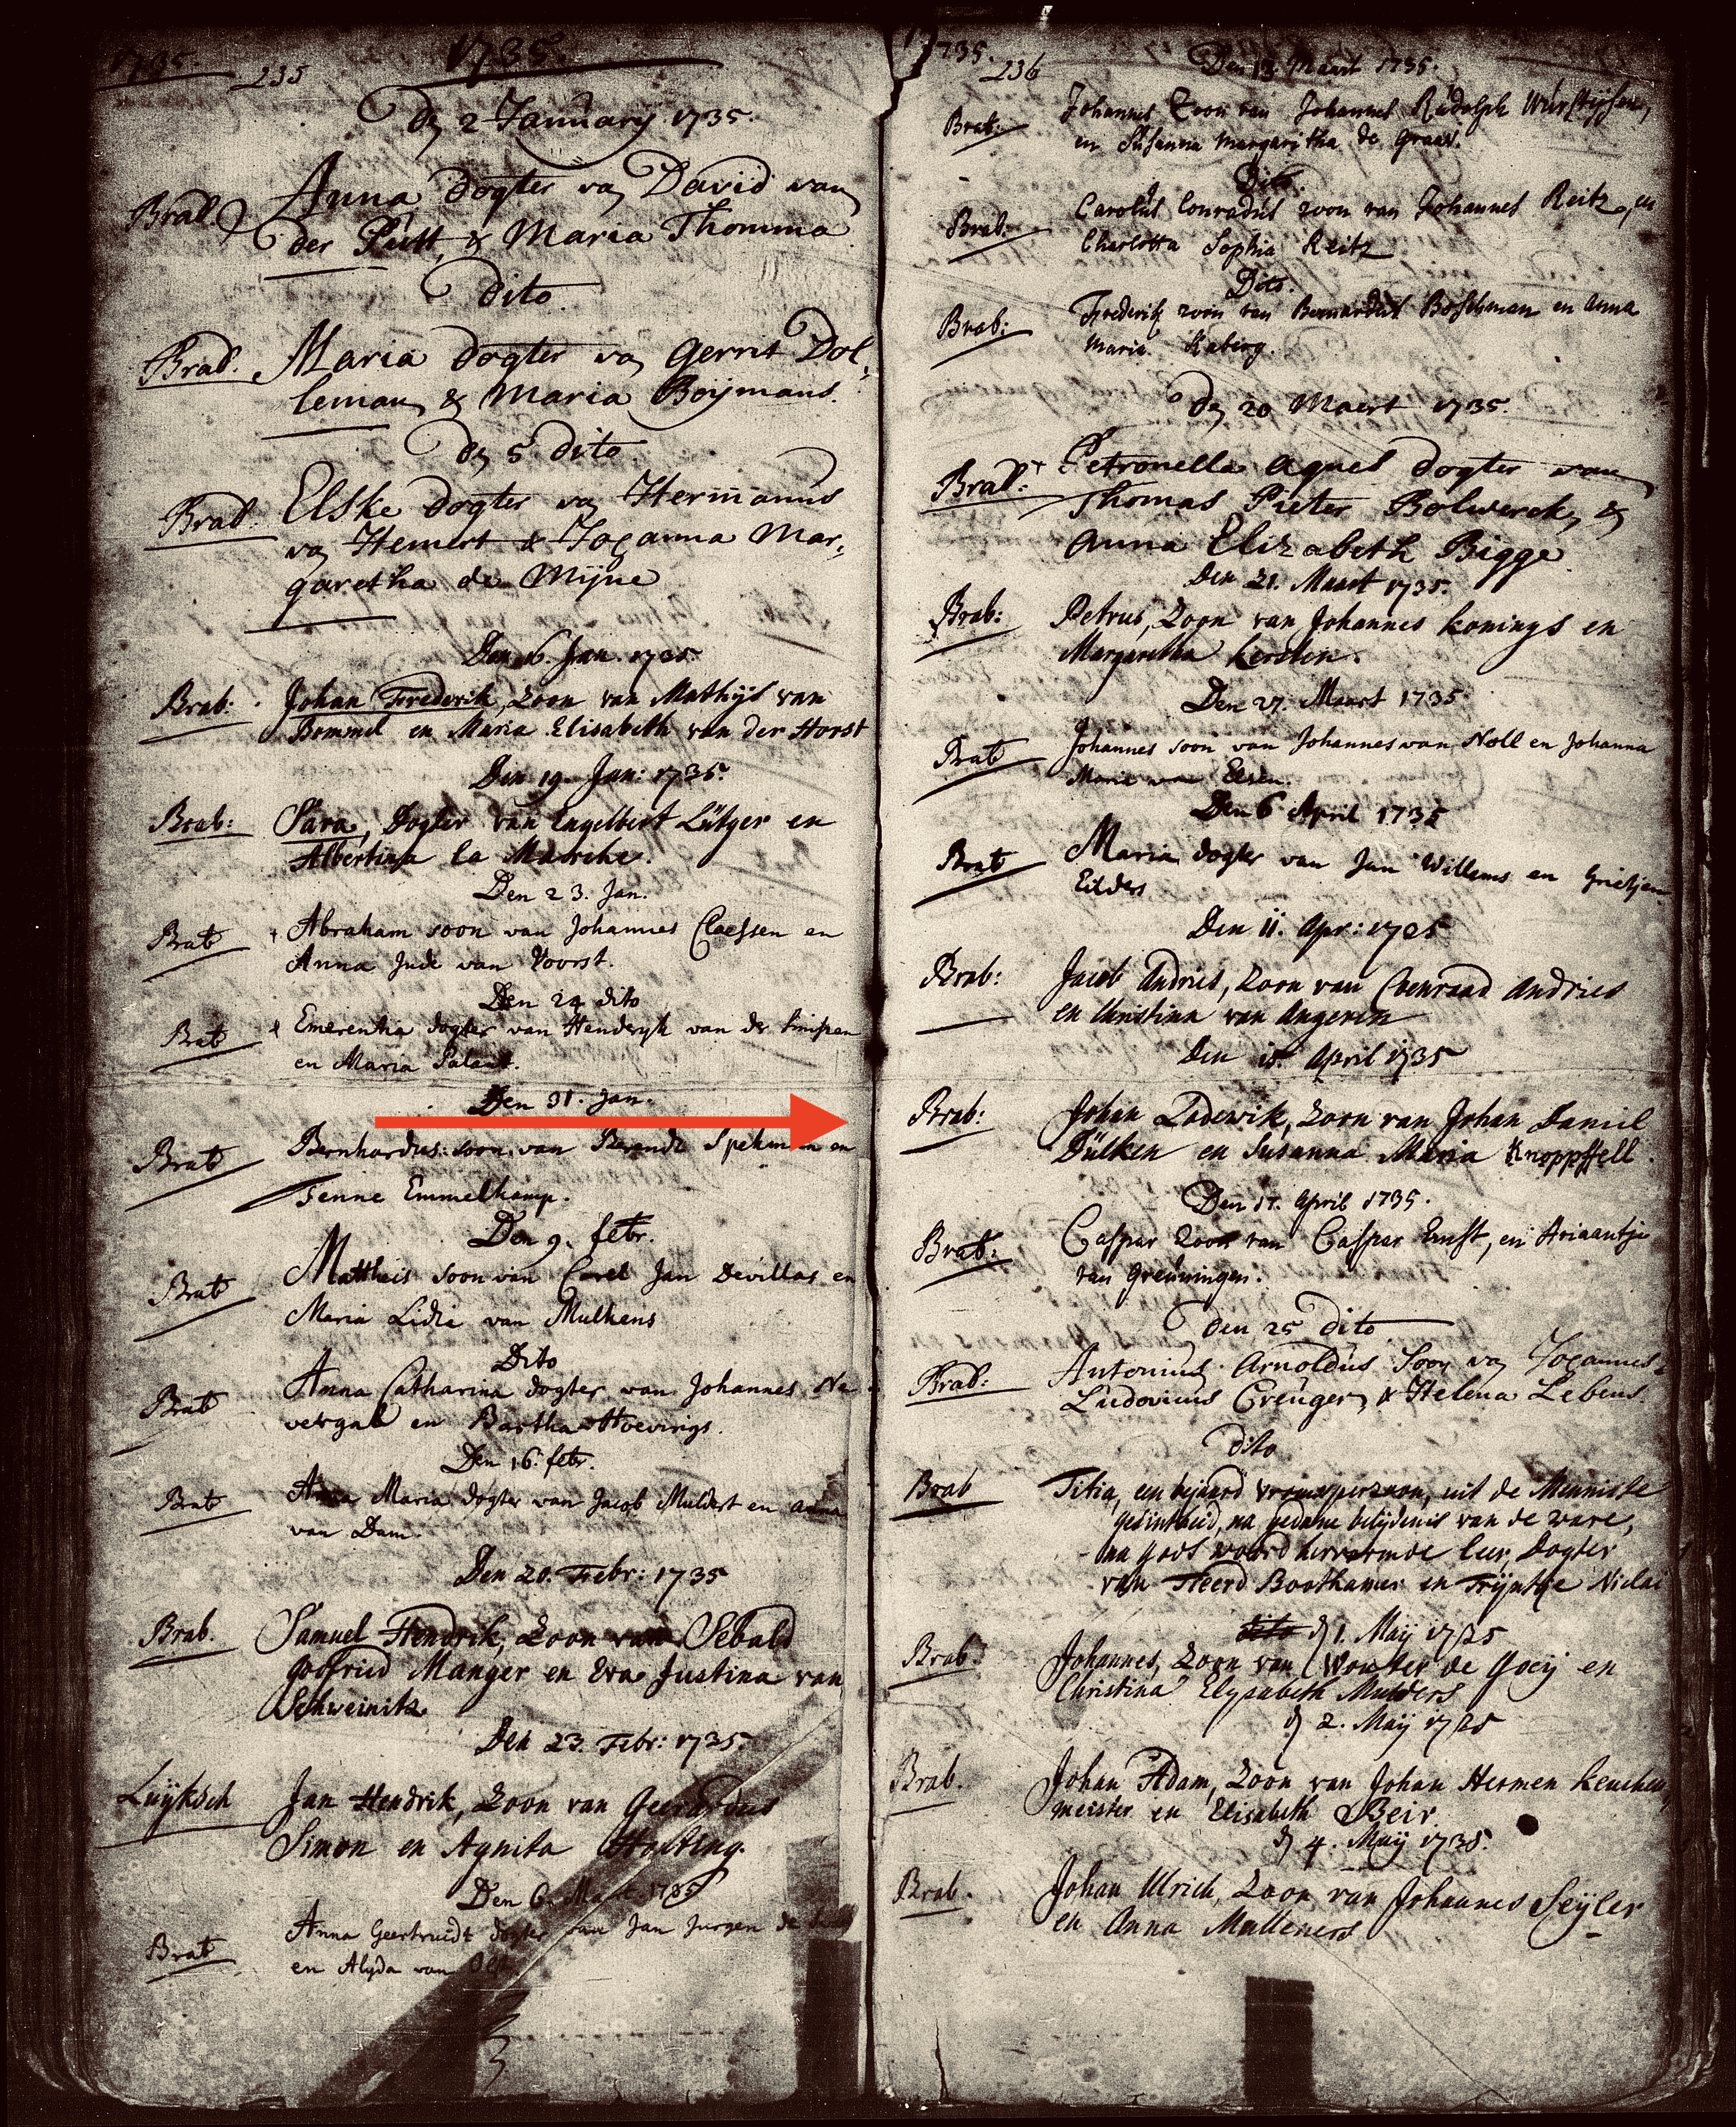 1735.
235
1735.
Dn 2 January 1735.
Brab. Anna dogter van David van
der Pütt, & Maria Thomma
dito
Brab. Maria dogter van Gerrit Dol-
leman & Maria Boijmans.
Dn 5 dito
Brab. Elske dogter van Hermanus
van Hemert & Johanna Mar-
garetha de Mijne
Den 16. Jan. 1735.
Brab: Johan Frederik, Zoon van Mathijs van
Bommel en Maria Elisabeth van der Horst
Den 19. Jan: 1735.
Brab: Sara, Dogter van Engelbert Lütger en
Albertina la Marche.
Den 23. Jan.
Brab Abraham soon van Johannes Claessen en
Anna Jude van Voorst.
Den 24 dito
Brab Emerentia dogter van Henderyk van der
en Maria Palant.
Den 31. Jan.
Brab Bernhardus soon van Berendt Spekman en
Jenne Emmelkamp.
Den 9. febr.
Brab Mattheis soon van Carel Jan Devillas en
Maria Lidia van Mulkens
Dito
Brab Anna Catharina dogter van Johannes Ne
vergal en Bartha Hoevings.
Den 16. febr.
Brab Anna Maria dogter van Jacob Muldert en Anna
van Dam.
Den 20. Febr: 1735
Brab. Samuel Hendrik, Zoon van Sebald
Godfried Manger en Eva Justina van
Schweinitz.
Den 23. Febr: 1735.
Luijksch Jan Hendrik, Zoon van Geerardus
Simon en Agnita Holting.
Den 6. Mart 1735
Brab Anna Geertruidt dogter van Jan Jurgen de
en Alyda van
1735.
236
Den 13. Maart 1735.
Brab: Johannes Zoon van Johannes Rudolph Würstijsen,
en Susanna Margaritha de Graad.
Dito.
Brab: Carolus Conradus zoon van Johannes Reitz, en
Charlotta Sophia Reitz
Dito.
Brab: Frederik zoon van Bernardus Boschman en Anna
Maria Kaberg.
Dn 20 Maert 1735.
Brab: Petronella Agnes dogter van
Thomas Pieter Bolwerck, &
Anna Elizabeth Bigge
Den 21. Maart 1735.
Brab: Petrus, Zoon van Johannes Konings en
Margaretha Kersten.
Den 27. Maart 1735
Brab Johannes soon van Johannes van Noll en Johanna
Maria van Elsen.
Den 6 April 1735
Brab Maria dogter van Jan Willems en Grietjen
Eilders
Den 11. Apr: 1735
Brab: Jacob Andries, Zoon van Coenraad Andries
en Christina van Angeren
Den 15. April 1735
Brab: Johan Lodewik, Zoon van Johan Daniel
Dülken en Susanna Maria Knoppffell.
Den 17. April 1735.
Brab: Caspar Zoon van Caspar Ernst, en Ariaantje
van Greuningen.
Den 25 dito
Brab: Antonius Arnoldus Soon van Johannes
Ludovicus Creuger, & Helena Lebens.
dito
Brab Titia, een bejaard vrouwperzoon, uit de Menniste
gesintheid, na gedane belijdenis van de ware,
na Gods woord hervormde leer, Dogter
van Heerd Boothamer en Trijntje Niclai
dito dn 1. Maij 1735
Brab. Johannes, Zoon van Wouter de Goeij en
Christina Elysabeth Mulders
dn 2. Maij 1735
Brab. Johan Adam, Zoon van Johan Hermen Keuchen,
meister en Elisabeth Beir.
dn 4. Maij 1735.
Brab. Johan Ulrich, Zoon van Johannes Seijler
en Anna Mulleners